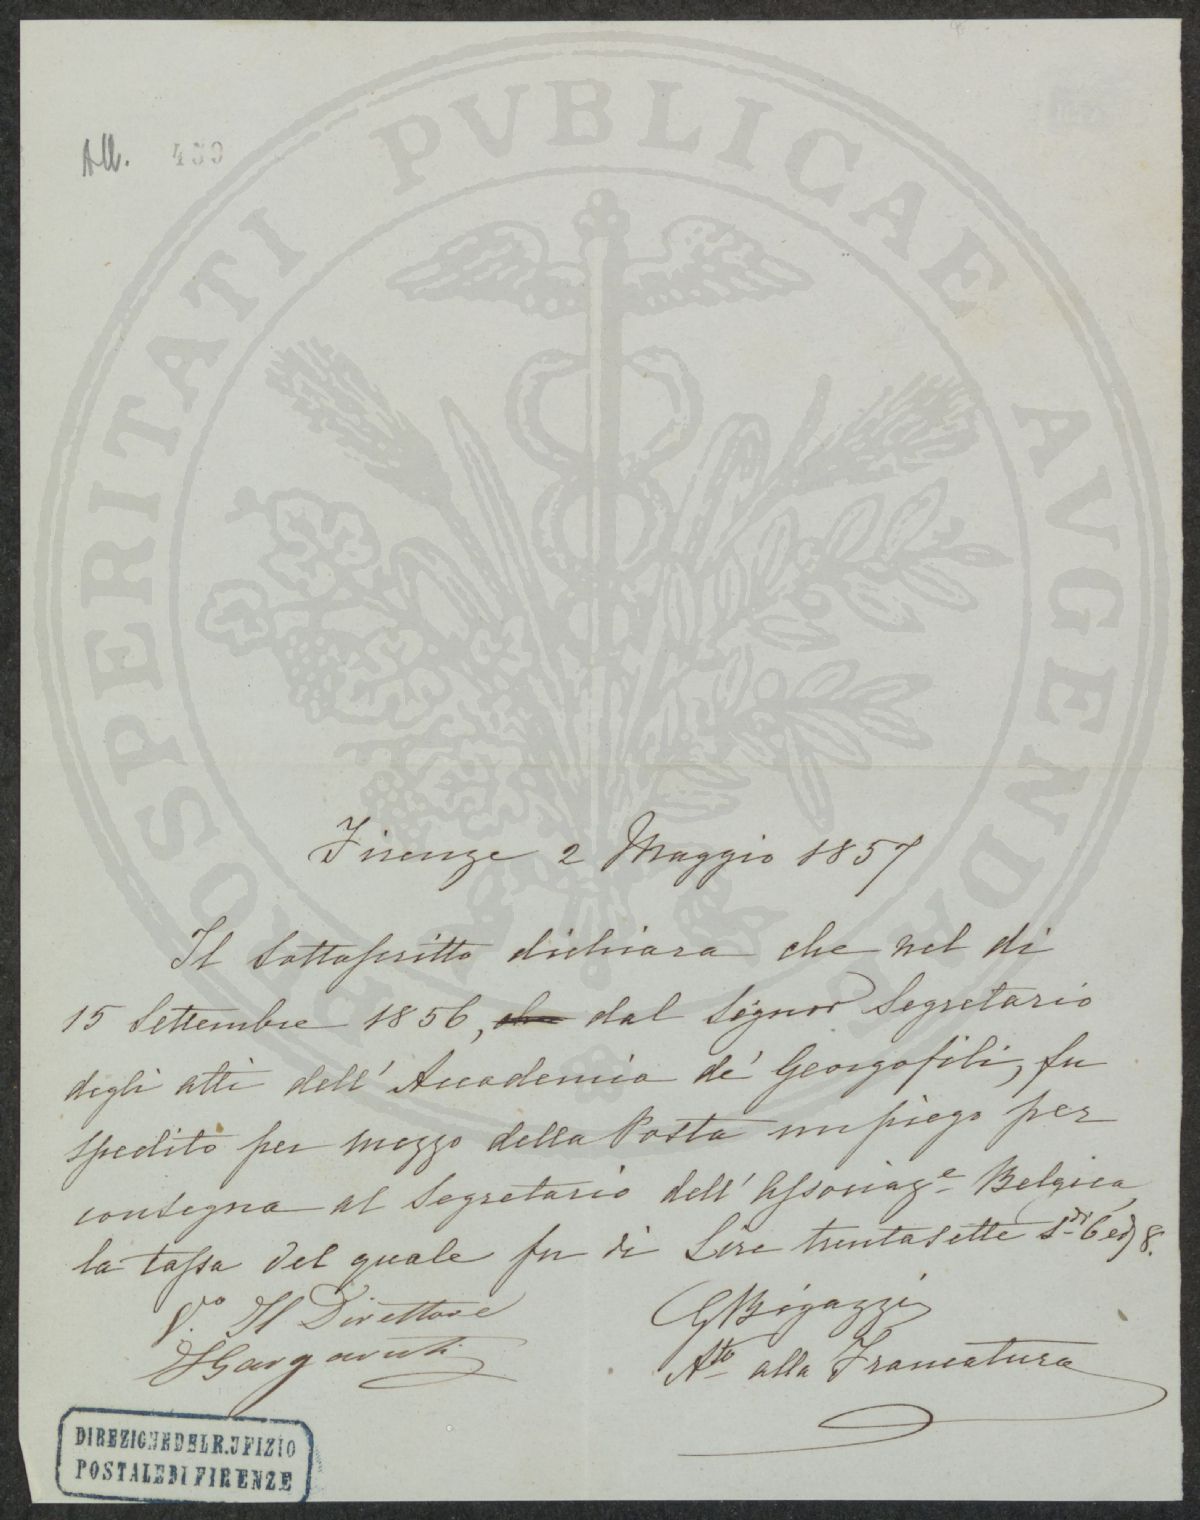 All. 459
PROSPERITATI PVBLICAE AVGENDAE
Firenze 2 Maggio 1857
Il Sottoscritto dichiara che nel dì
15 Settembre 1856, che dal Signor Segretario
degli atti dell' Accademia de' Georgofili, fu
spedito per mezzo della Posta un piego per
consegna al Segretario dell' Associaz.e Belgica,
la tassa del quale fu di Lire trentasette S.di 6 e d 8.
V.o Il Direttore
GBigazzi
A.to alla Francatura
DIREZIONE DEL R. UFIZIO
POSTALE DI FIRENZE